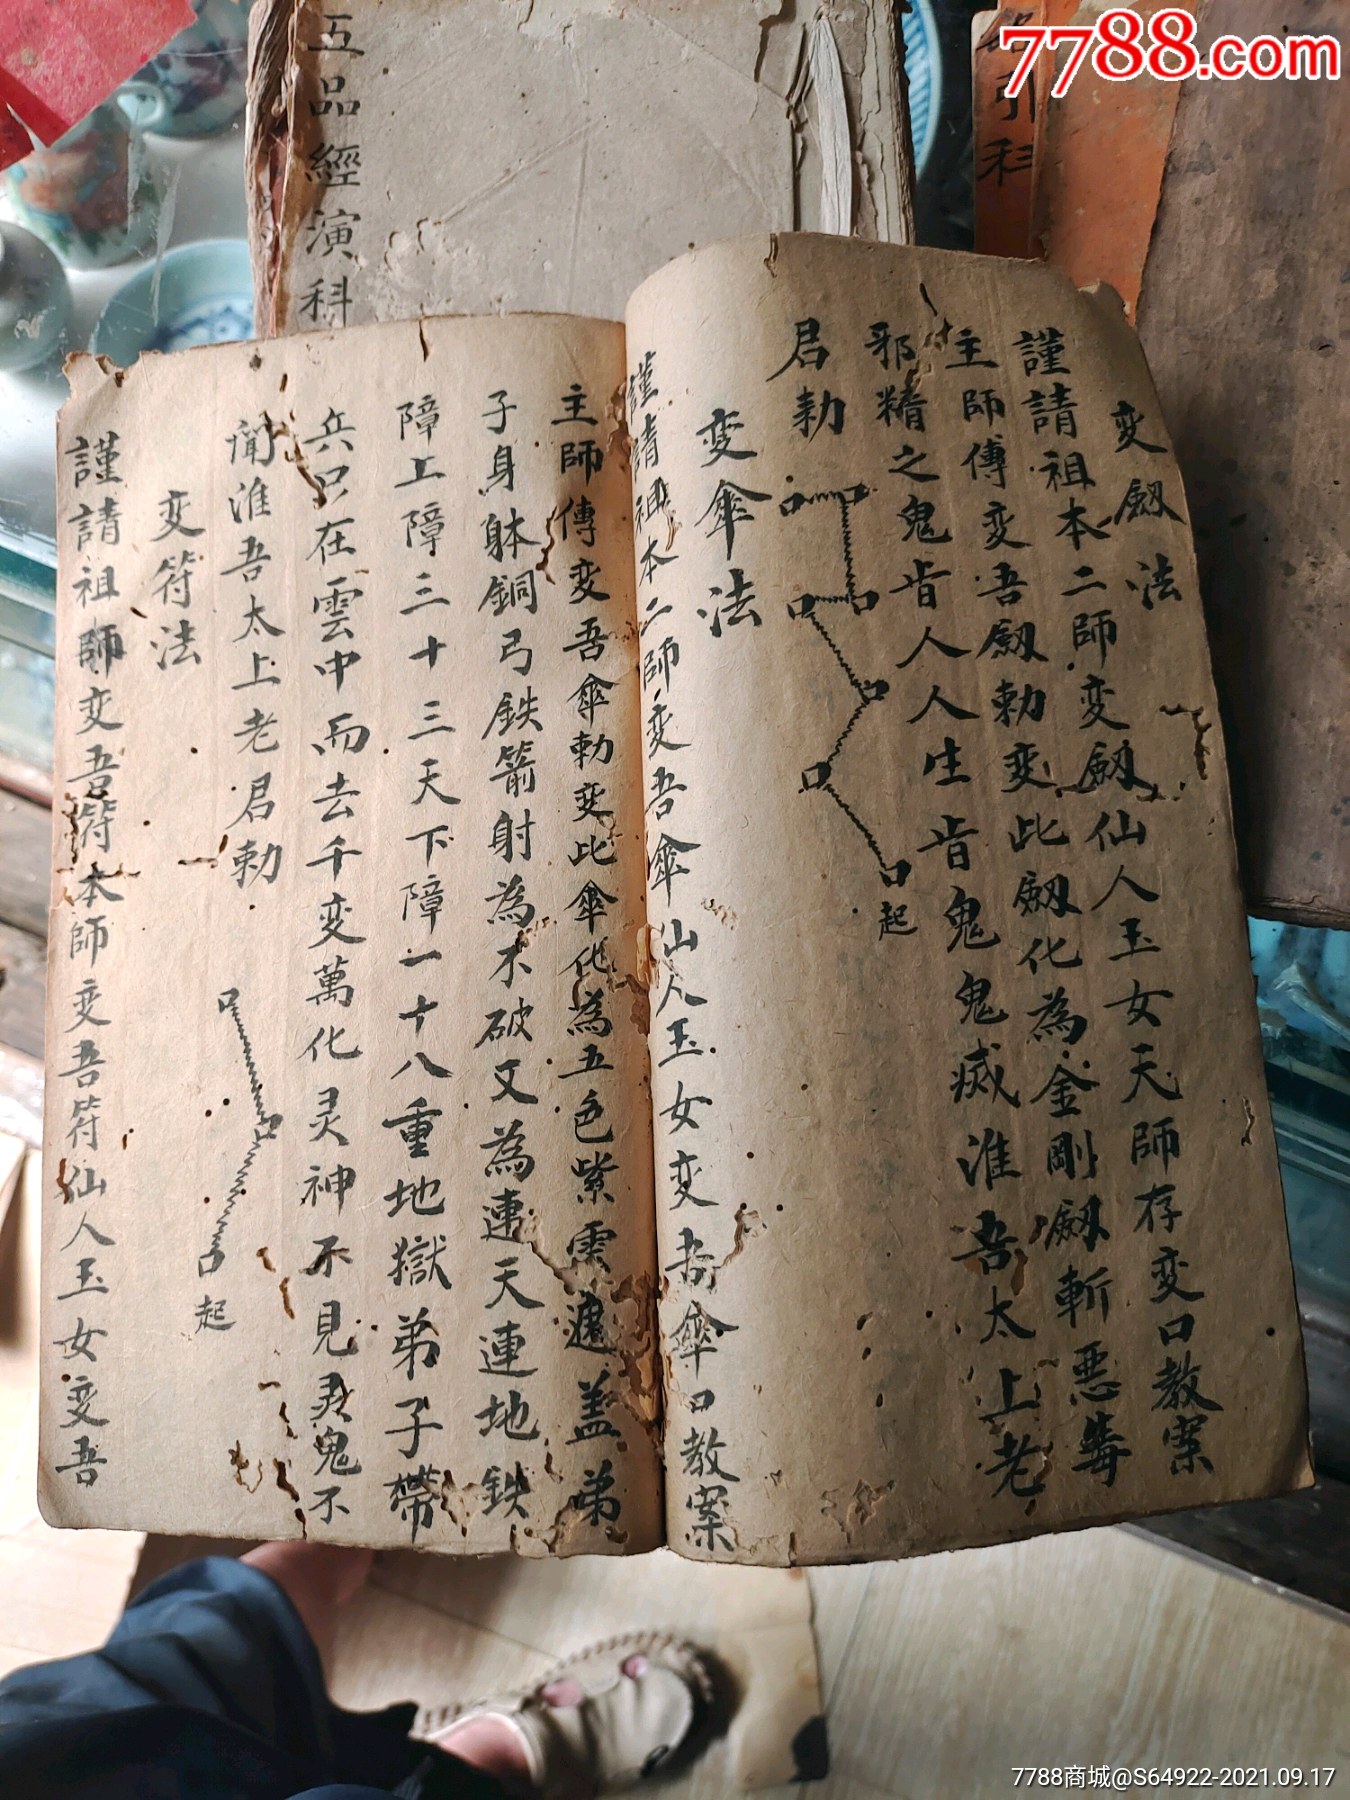 7788.com
五品經演科
引科
变劔法
謹請祖本二師变劔仙人玉女天師存变口教案
主師傅变吾劔勅变此劔化為金剛劔斬惡毒
邪精之鬼肯人人生肯鬼鬼滅准吾太上老
君勅
起
变傘法
謹請祖本二師变吾傘仙人玉女变吾傘口教案
主師傅变吾傘勅变此傘化為五色紫雲遮盖弟
子身躰銅弓鉄箭射為不破又為連天連地鉄
障上障三十三天下障一十八重地獄弟子帶
兵只在雲中而去千变萬化灵神不見灵鬼不
聞准吾太上老君勅
起
变符法
謹請祖師变吾符本師变吾符仙人玉女变吾
7788商城@S64922-2021.09.17